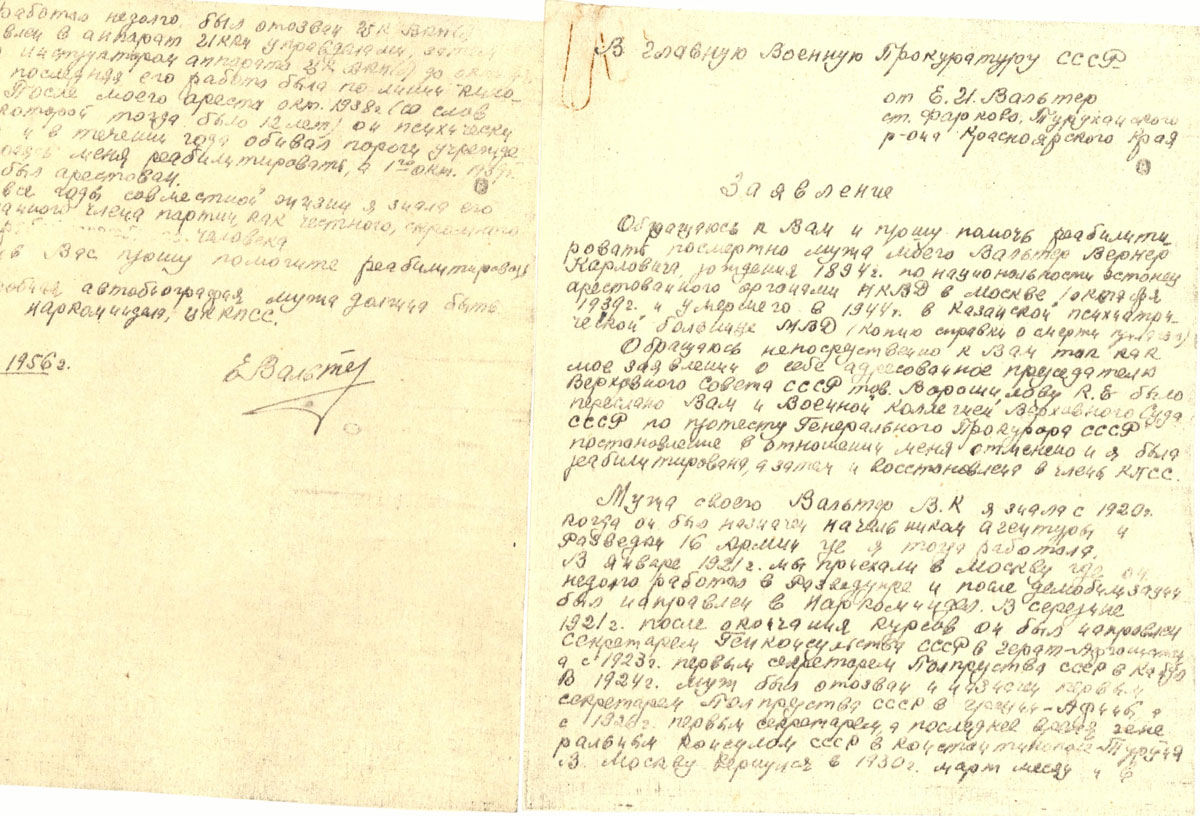 В Главную Военную Прокуратуру СССР
от Е.И. Вальтер
ст. Фарково, Туруханского
р-она Красноярского Края
Заявление
Обращаюсь к Вам и прошу помочь реабилити
ровать посмертно мужа моего Вальтер Вернер
Карловича, рождения 1894г. по национальности эстонец
арестованного органами НКВД в Москве /октября
1939г. и умершего в 1944г. в Казанской психиатри-
ческой больнице МВД (копию справки о смерти
Обращаюсь непосредственно к Вам так как
мое заявлении о себе адресованное председателю
Верховного Совета СССР тов. Ворошилову К.Е было
переслано Вам и Военной Коллегией Верховного Суда
СССР по протесту Генерального Прокурора СССР
постановление в отношении меня отменено и я была
реабилитирована, а затем и восстановлена в члены КПСС.
Мужа своего Вальтер В.К я знала с 1920г.
когда он был назначен начальником агентуры и
разведки 16 Армии где я тогда работала.
В январе 1921г. мы приехали в Москву где он
недолго работал в Разведупре и после демобилизации
был направлен в Наркоминдел. В середине
1921г. после окончания курсов он был направлен
секретарем Генконсульства СССР в Герат-Афганистан
а с 1923г. первым секретарем Полпредства СССР в Кабул
В 1924г. муж был отозван и назначен первым
секретарем Полпредства СССР в Греции-Афины, а
с 1926г. первым секретарем, а последнее время гене
ральным консулом СССР в Константинополе-Турция
В Москву вернулся в 1930г. март месяц и в
работал недолго, был отозван ЦК ВКП(б)
в аппарат управделами, затем
инструктором аппарата ЦК ВКП(б) до
последняя его работа была по линии кино-
После моего ареста окт. 1938г (со слов
которой тогда было 12 лет) он психически
и в течении года обивал пороги учрежде
меня реабилитировать, а 1го окт. 1939г.
был арестован.
все годы совместной жизни я знала его
члена партии, как честного, скромного
человека
Вас прошу помогите реабилитировать
автобиография мужа должна быть
Наркоминдел, ЦККПСС.
1956г.
ЕВальтер